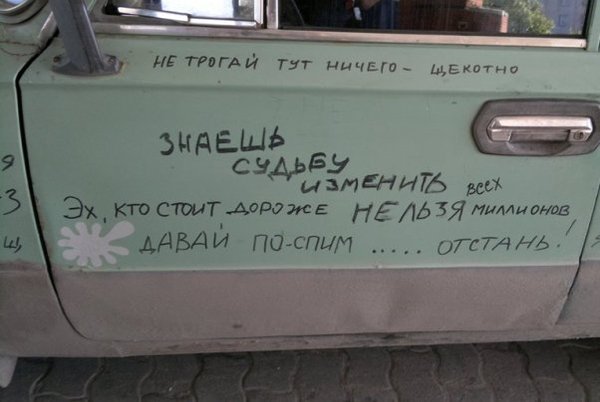 НЕ ТРОГАЙ ТУТ НИЧЕГО - ЩЕКОТНО
ЗНАЕШЬ
СУДЬБУ
ИЗМЕНИТЬ
ВСЕХ
ЭХ, КТО СТОИТ ДОРОЖЕ НЕЛЬЗЯ МИЛЛИОНОВ
ДАВАЙ ПО-СПИМ ..... ОТСТАНЬ!
Я
-З
Щ